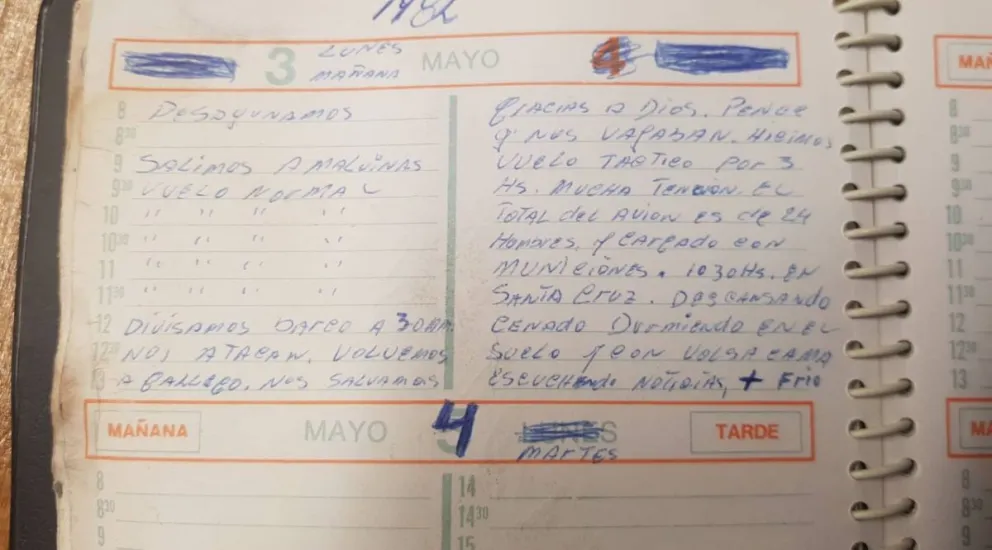 1982
3 LUNES MAYO
MAÑANA
4
8 DESAYUNAMOS
8 30
9 SALIMOS A MALVINAS
9 30 VUELO NORMAL
10 " " " "
10 30 " " " "
11 " " " "
11 30 " " " "
12 DIVISAMOS BARCO A 30
12 30 NOS ATACAN. VOLVEMOS
13 A GALLEGO. NOS SALVAMOS
GRACIAS A DIOS. PENCE
Q' NOS VAJABAN. HICIMOS
VUELO TACTICO POR 3
HS. MUCHA TENCION. EL
TOTAL del AVION ES de 24
Hombres. Y CARGADO CON
MUNICIONES. 10 30 Hs. EN
SANTA CRUZ. DESCANSANDO
CENADO Durmiendo EN EL
SUELO Y CON VOLSA CAMA
ESCUCHANdo NOTICIAS, + Frio
MAÑANA MAYO 4 TARDE
MARTES
8
8 30
9
14
14 30
15
MAÑ
8
8 30
9
9 30
10
10 30
11
11 30
12
12 30
13
MA
8
8 30
9